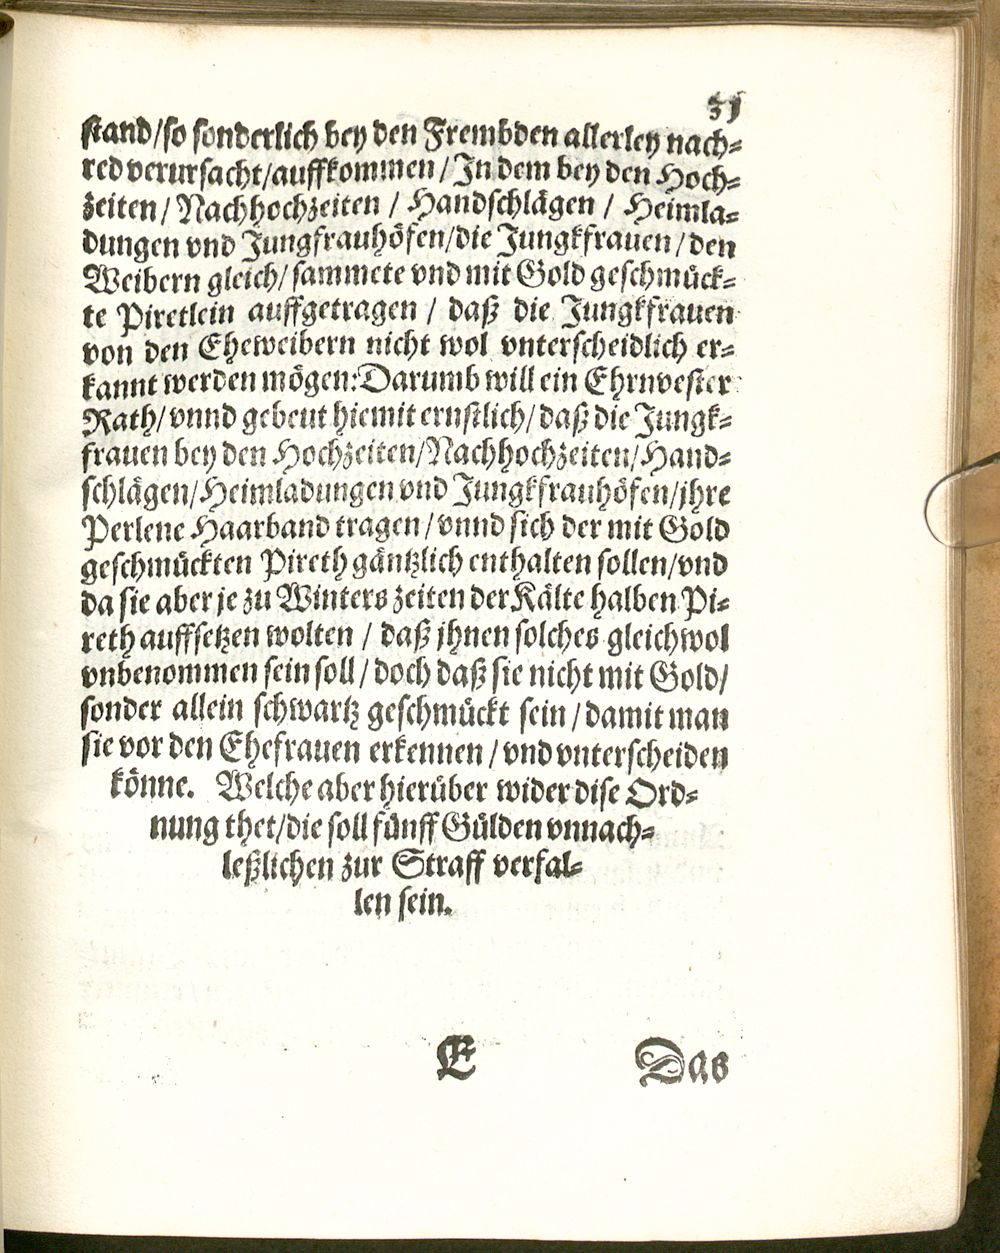 31
stand/so sonderlich bey den Frembden allerley nach⸗
red verursacht/auffkommen / In dem bey den Hoch⸗
zeiten / Nachhochzeiten / Handschlägen / Heimla⸗
dungen vnd Jungfrauhöfen/die Jungkfrauen / den
Weibern gleich/ sammete vnd mit Gold geschmück⸗
te Piretlein auffgetragen / daß die Jungkfrauen
von den Eheweibern nicht wol vnterscheidlich er⸗
kannt werden mögen: Darumb will ein Ehrnvester
Rath/ vnnd gebeut hiemit ernstlich/ daß die Jungk⸗
frauen bey den Hochzeiten/Nachhochzeiten/Hand⸗
schlägen/Heimladungen vnd Jungkfrauhöfen/jhre
Perlene Haarband tragen / vnnd sich der mit Gold
geschmückten Pireth gäntzlich enthalten sollen/vnd
da sie aber je zu Winters zeiten der Kälte halben Pi⸗
reth auffsetzen wolten / daß jhnen solches gleichwol
vnbenommen sein soll / doch daß sie nicht mit Gold/
sonder allein schwartz geschmückt sein / damit man
sie vor den Ehefrauen erkennen / vnd vnterscheiden
könne. Welche aber hierüber wider dise Ord⸗
nung thet/die soll fünff Gülden vnnach⸗
leßlichen zur Straff verfal⸗
len sein.
E Das